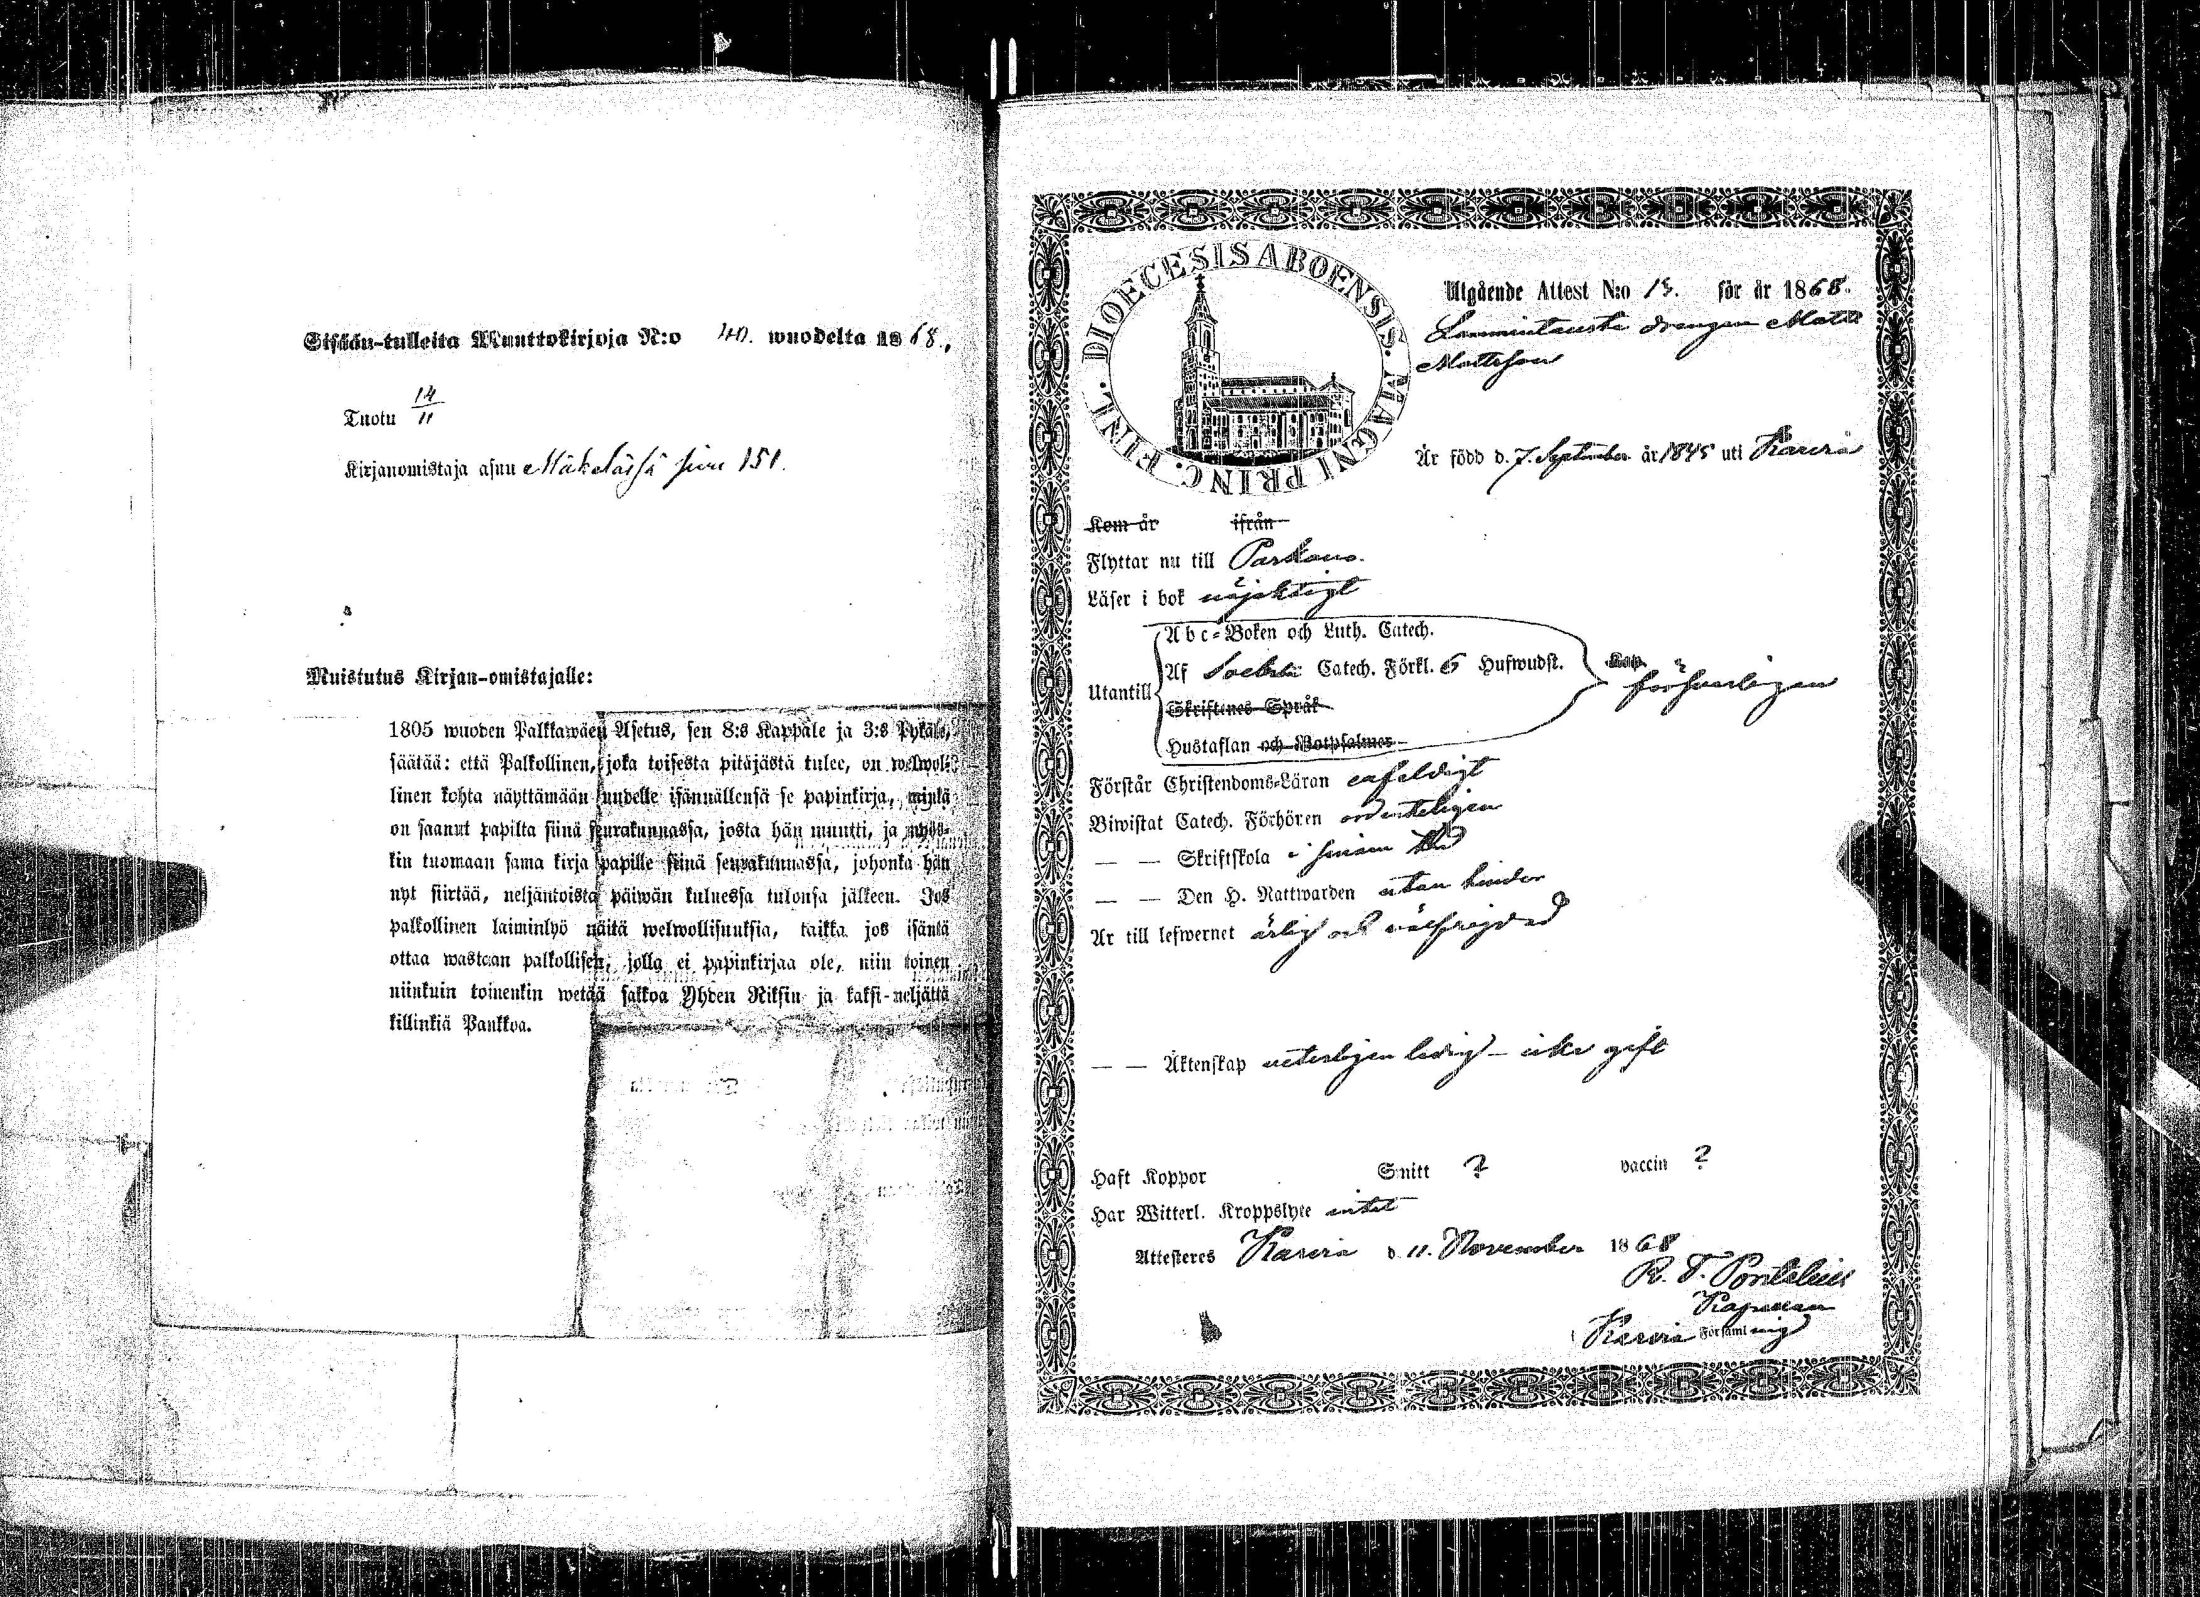 Sisään-tulleita Muuttokirjoja N:o 40. wuodelta 1868.
Tuotu 14/11
Kirjanomistaja asuu Mäkelässä sivu 151.
Muistutus Kirjan-omistajalle:
1805 wuoden Palkkawäen Asetus, sen 8:s Kappale ja 3:s Pykälä,
säätää: että Palkollinen, joka toisesta pitäjästä tulee, on welwol-
linen kohta näyttämään uudelle isännällensä se papinkirja, minkä
on saanut papilta siinä seurakunnassa, josta hän muutti, ja myös-
kin tuomaan sama kirja papille siinä seurakunnassa, johonka hän
nyt siirtää, neljäntoista päiwän kuluessa tulonsa jälkeen. Jos
palkollinen laiminlyö näitä welwollisuuksia, taikka jos isäntä
ottaa wastaan palkollisen, jolla ei papinkirjaa ole, niin toinen
niinkuin toinenkin wetää sakkoa Yhden Riksin ja kaksi-neljättä
killinkiä Pankkoa.
DIOECESIS ABOENSIS. MAGNI PRINC. FINL.
Utgående Attest N:o 13. för år 1868.
drengen Matts
Mattsson
Är född d. 7. September år 1845 uti Karvia
Kom år ifrån
Flyttar nu till Parkano.
Läser i bok nöjaktigt
Abc-Boken och Luth. Catech.
Af Catech. Förkl. 6 Hufwudst. Kap. försvarligen
Utantill
Skriftenes Språk
Hustaflan och Botpsalmer
Förstår Christendoms-Läran enfaldigt
Biwistat Catech. Förhören ordenteligen
— — Skriftskola i sinom tid
— — Den H. Nattwarden utan hinder
Är till lefwernet ärlig och välfrejdad
— — Äktenskap veterligen ledig – icke gift
Haft Koppor Snitt ? vaccin ?
Har Witterl. Kroppslyte intet
Attesteres Karvia d. 11. November 1868
R. F. Pontelius
Kapellan
Karvia Församling